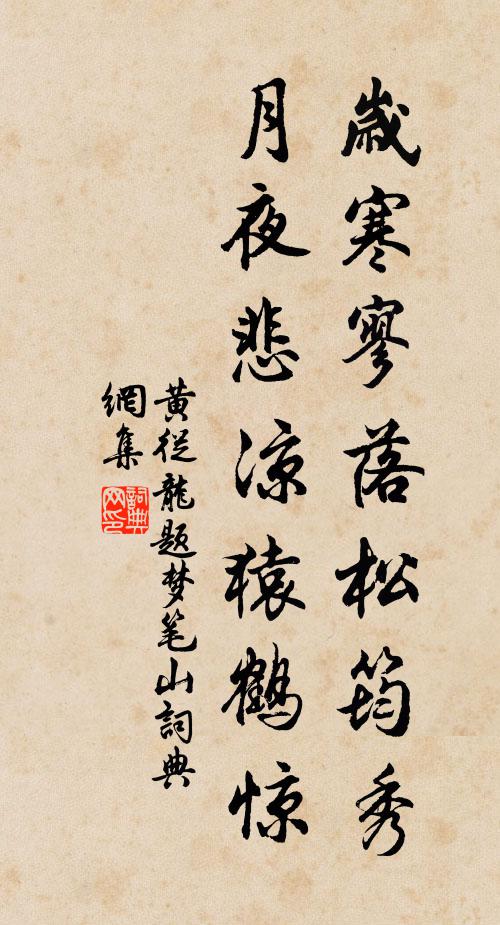 歲寒寥落松筠秀
月夜悲涼猿鶴惊
黄從龍題梦笔山詞典
網集
詞典
网印